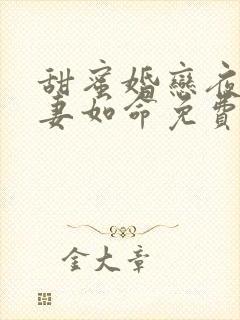 甜蜜婚戀夜
妻如命免費
金大章